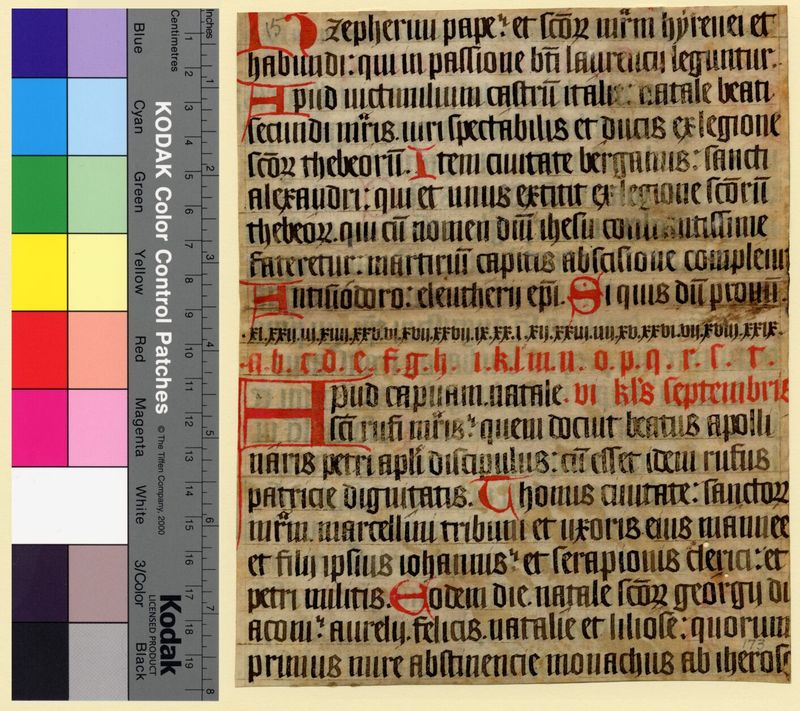 Inches
Centimetres
Blue
Cyan
Green
Yellow
Red
Magenta
White
3/Color
Black
KODAK Color Control Patches © The Tiffen Company, 2000
Kodak
LICENSED PRODUCT
1 2 3 4 5 6 7 8 9 10 11 12 13 14 15 16 17 18 19
1 2 3 4 5 6 7 8
15
zepherini pape. et scōꝝ mr̄m hyrenei et
habundi: qui in passione bti laurencii leguntur.
Apud victimilium castrū italie: natale beati
secundi mr̄is. viri spectabilis et ducis ex legione
scōꝝ thebeorū. Item ciuitate bergamis: sancti
alexandri: qui et unus extitit ex legione scōrū
thebeoꝝ. qui cū nomen dm̄i ihesu
fateretur: martiriū capitis abscisione
Antisiōdoro: eleutherii ep̄i. Si quis dū
a. b. c. d. e. f. g. h. i. k. l. m. n. o. p. q. r. s. t.
Apud capuam. natale. vi kls septembris
scī rufi mr̄is. quem docuit beatus apolli
naris petri apli discipulus: cū esset idem rufus
patricie dignitatis. Thomis ciuitate: sanctoꝝ
mr̄m. marcellini tribuni et uxoris eius mannee
et filij ipsius iohannis. et serapionis clerici: et
petri militis. Eodem die. natale scōꝝ georgii di
aconi. aurelij. felicis. natalie et liliose: quorum
primus mire abstinencie monachus ab iheros